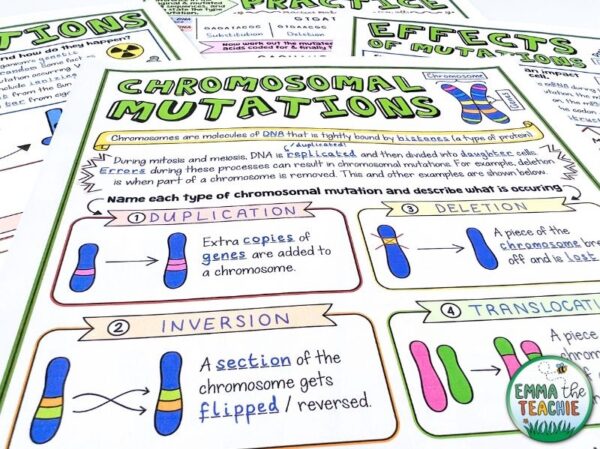 PRACTICE
original & mutated
sequences, and
state the
mutation
DNA
GTGAT
GAGATACGC
GTGAACGG
Substitution
Deletion
Now work out the mutated
acids coded for & finally
TIONS
and how do they happen?
EFFECTS
OF MUTATIONS
an impact
CHROMOSOMAL
MUTATIONS
Chromosome
Genes
Chromosomes are molecules of DNA that is tightly bound by histones (a type of protein)
(duplicated)
During mitosis and meiosis, DNA is replicated and then divided into daughter cells.
Errors during these processes can result in chromosomal mutations. For example, deletion
is when part of a chromosome is removed. This and other examples are shown below.
Name each type of chromosomal mutation and describe what is occuring
1 DUPLICATION
Extra copies of
genes are added to
a chromosome.
3 DELETION
A piece of the
chromosome bre
off and is lost
2 INVERSION
A section of the
chromosome gets
flipped / reversed.
4 TRANSLOCATI
A piece
chrom
EMMA the
TEACHIE